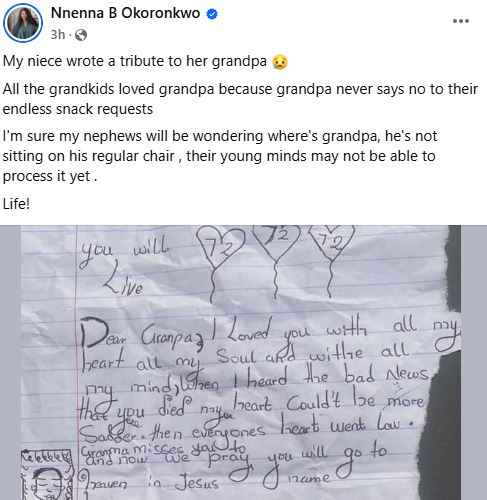 Nnenna B Okoronkwo
3h
My niece wrote a tribute to her grandpa
All the grandkids loved grandpa because grandpa never says no to their
endless snack requests
I'm sure my nephews will be wondering where's grandpa, he's not
sitting on his regular chair , their young minds may not be able to
process it yet .
Life!
you will 72 72 72
Live
Dear Granpa, I Loved you with all my
heart all my Soul and withe all
my mind, When I heard the bad News
that you died my heart Could't be more
Sadder. then everyones heart went Low.
Granma misses you to
and now we pray you will go to
Heaven in Jesus name